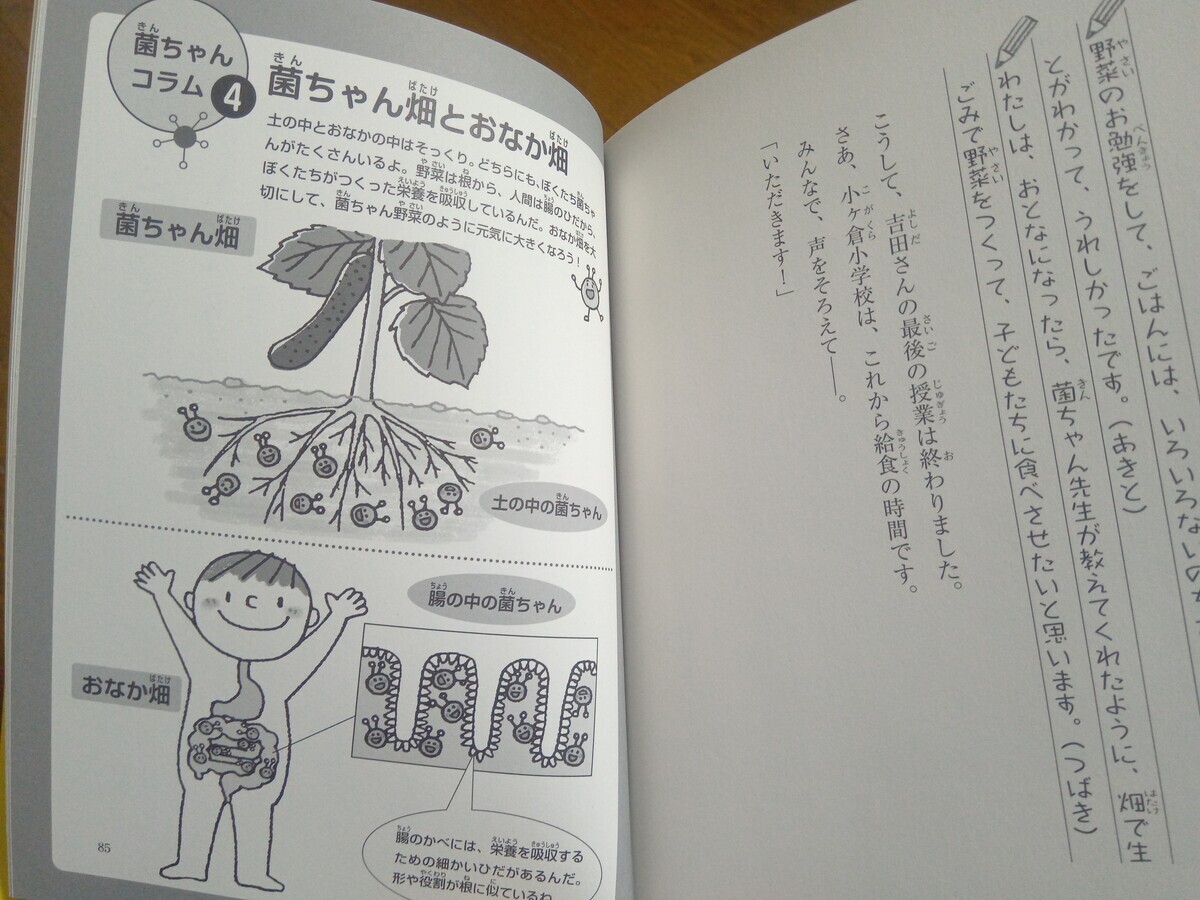 野菜のお勉強をして、ごはんには、いろいろないの
とがわかって、うれしかったです。(あきと)
わたしは、おとなになったら、菌ちゃん先生が教えてくれたように、畑で生
ごみで野菜をつくって、子どもたちに食べさせたいと思います。(つばき)
こうして、吉田さんの最後の授業は終わりました。
さあ、小ケ倉小学校は、これから給食の時間です。
みんなで、声をそろえて――。
「いただきます!」
菌ちゃん
コラム4
菌ちゃん畑とおなか畑
土の中とおなかの中はそっくり。どちらにも、ぼくたち菌ちゃ
んがたくさんいるよ。野菜は根から、人間は腸のひだから、
ぼくたちがつくった栄養を吸収しているんだ。おなか畑を大
切にして、菌ちゃん野菜のように元気に大きくなろう!
菌ちゃん畑
土の中の菌ちゃん
腸の中の菌ちゃん
おなか畑
腸のかべには、栄養を吸収する
ための細かいひだがあるんだ。
形や役割が根に似ているね
85